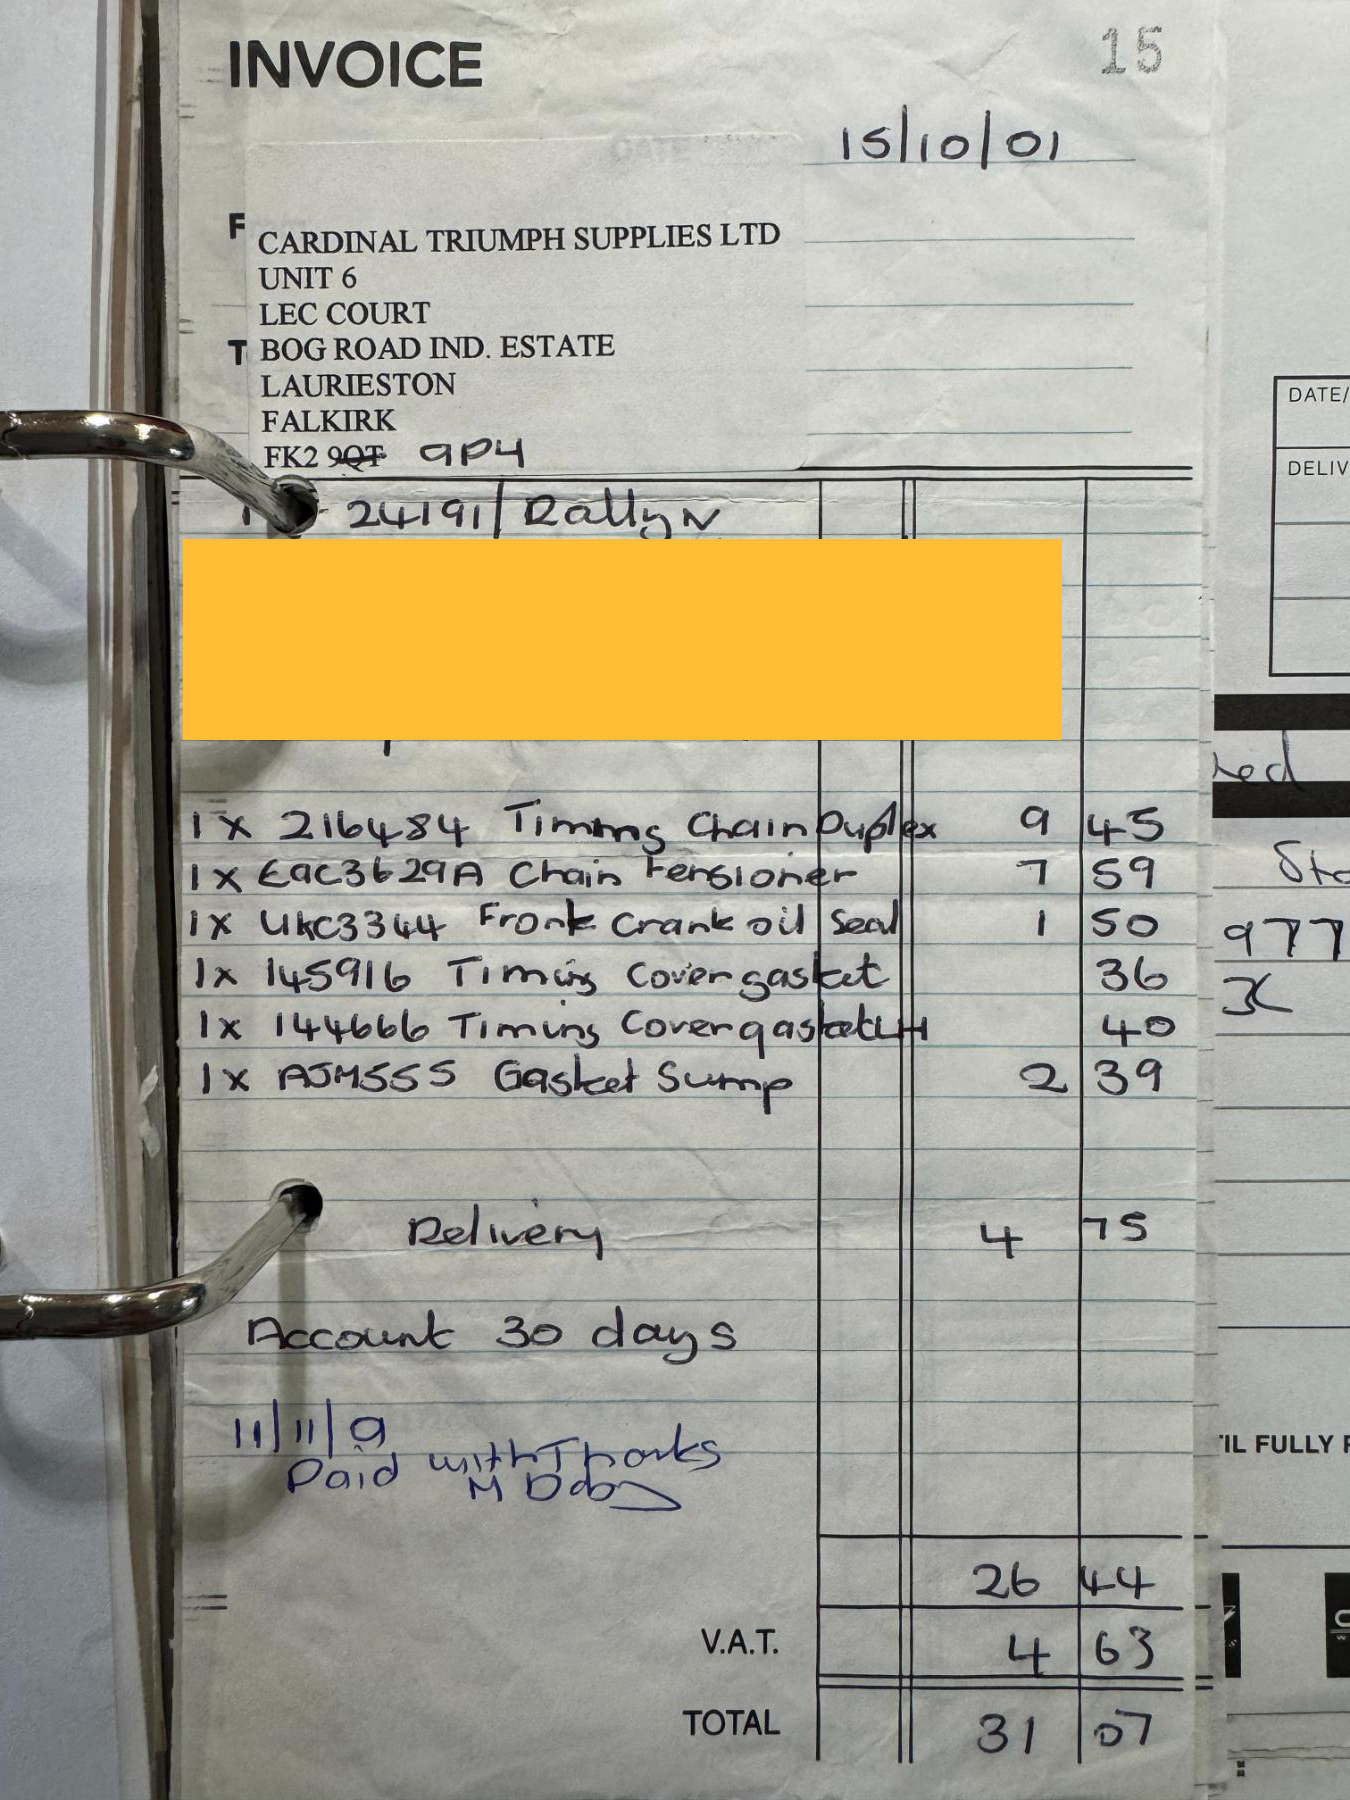 INVOICE
15
15/10/01
F
CARDINAL TRIUMPH SUPPLIES LTD
UNIT 6
LEC COURT
T BOG ROAD IND. ESTATE
LAURIESTON
FALKIRK
FK2 9QT 9P4
24191/ Rally
1x 216484 Timing Chain Duplex 9 45
1x EAC3629A Chain tensioner 7 59
1x UKC3344 Front Crank oil Seal 1 50
1x 145916 Timing Cover gasket 36
1x 144666 Timing Cover gasket LH 40
1x AJM555 Gasket Sump 2 39
Delivery 4 75
Account 30 days
11/11/9
Paid with Thanks
M
26 44
V.A.T. 4 63
TOTAL 31 07
DATE/
DELIV
977
IL FULLY